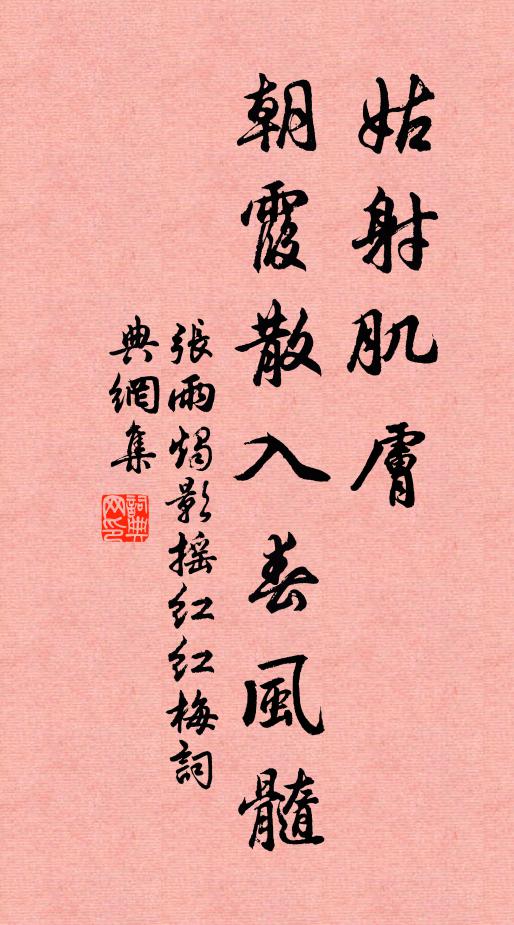 姑射肌膚
朝霞散入春風髓
張雨燭影搖紅紅梅詞
典網集
詞典網印